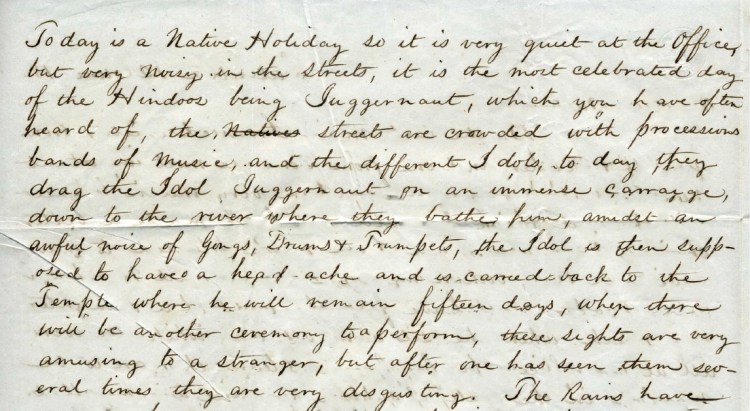 Today is a Native Holiday so it is very quiet at the Office,
but very noisy in the streets, it is the most celebrated day
of the Hindoos being Juggernaut, which you have often
heard of, the Natives streets are crowded with processions
bands of music, and the different Idols, to day they
drag the Idol Juggernaut on an immense carraige,
down to the river where they bathe him, amidst an
awful noise of Gongs, Drums & Trumpets, the Idol is then supp-
osed to have a head-ache and is carried back to the
Temple where he will remain fifteen days, when there
will be another ceremony to perform, these sights are very
amusing to a stranger, but after one has seen them sev-
eral times they are very disgusting. The Rains have